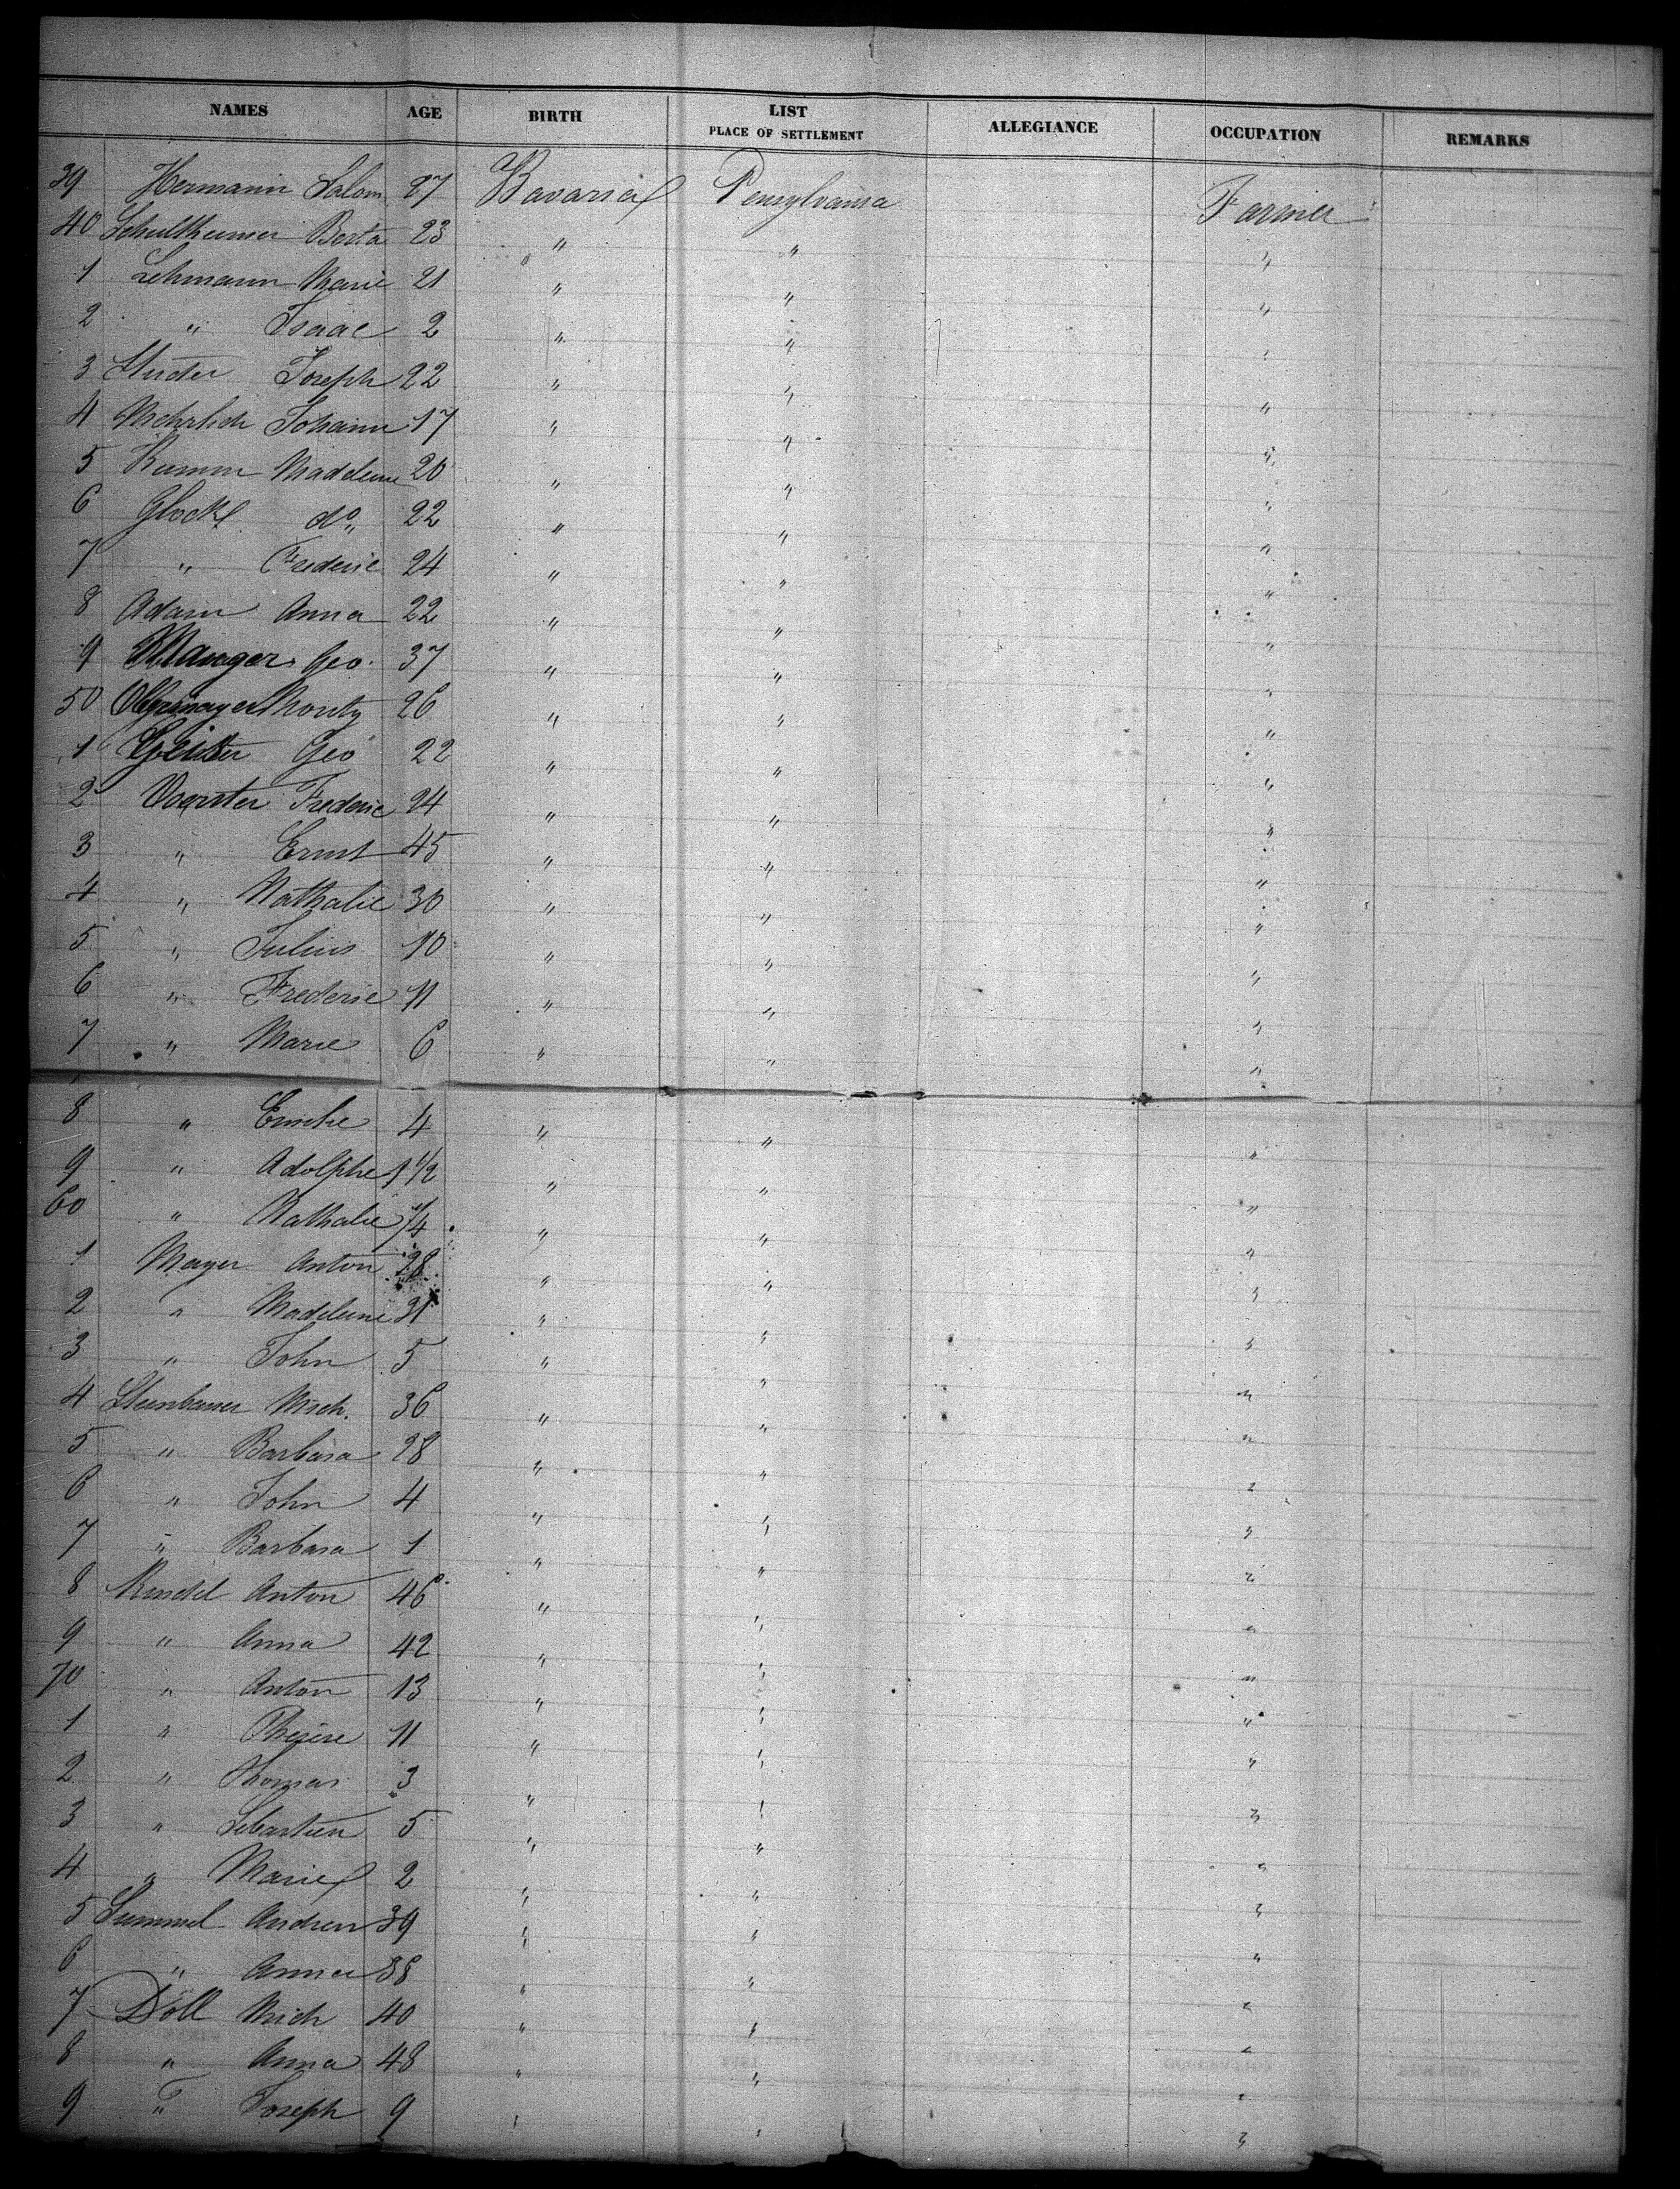 NAMES AGE BIRTH LIST PLACE OF SETTLEMENT ALLEGIANCE OCCUPATION REMARKS
39 Hermann Salom 27 Bavaria Pensylvania Farmer
40 Schultheimer Berta 23 " " "
1 Lehmann Marie 21 " " "
2 " Isaac 2 " " "
3 Studer Joseph 22 " " "
4 Mehrlich Johann 17 " " "
5 Rumm Madeleine 20 " " "
6 Glock do 22 " " "
7 " Frederic 24 " " "
8 Adam Anna 22 " " "
9 Manger Geo. 37 " " "
50 Moritz 26 " " "
1 Geister Geo 22 " " "
2 Voerster Frederic 24 " " "
3 " Ernst 45 " " "
4 " Nathalie 30 " " "
5 " Julius 10 " " "
6 " Frederic 11 " " "
7 " Marie 6 " " "
8 " Emilie 4 " " "
9 " Adolphe 1 1/2 " " "
60 " Nathalie 1/4 " " "
1 Mayer Anton 28 " " "
2 " Madeleine 31 " " "
3 " John 5 " " "
4 Steinbauer Mich. 36 " " "
5 " Barbara 28 " " "
6 " John 4 " " "
7 " Barbara 1 " " "
8 Anton 46 " " "
9 " Anna 42 " " "
70 " Anton 13 " " "
1 " Therese 11 " " "
2 " Thomas 3 " " "
3 " Sebastien 5 " " "
4 " Marie 2 " " "
5 Summel Andreu 39 " " "
6 " Anna 38 " " "
7 Döll Mich 40 " " "
8 " Anna 48 " " "
9 " Joseph 9 " " "